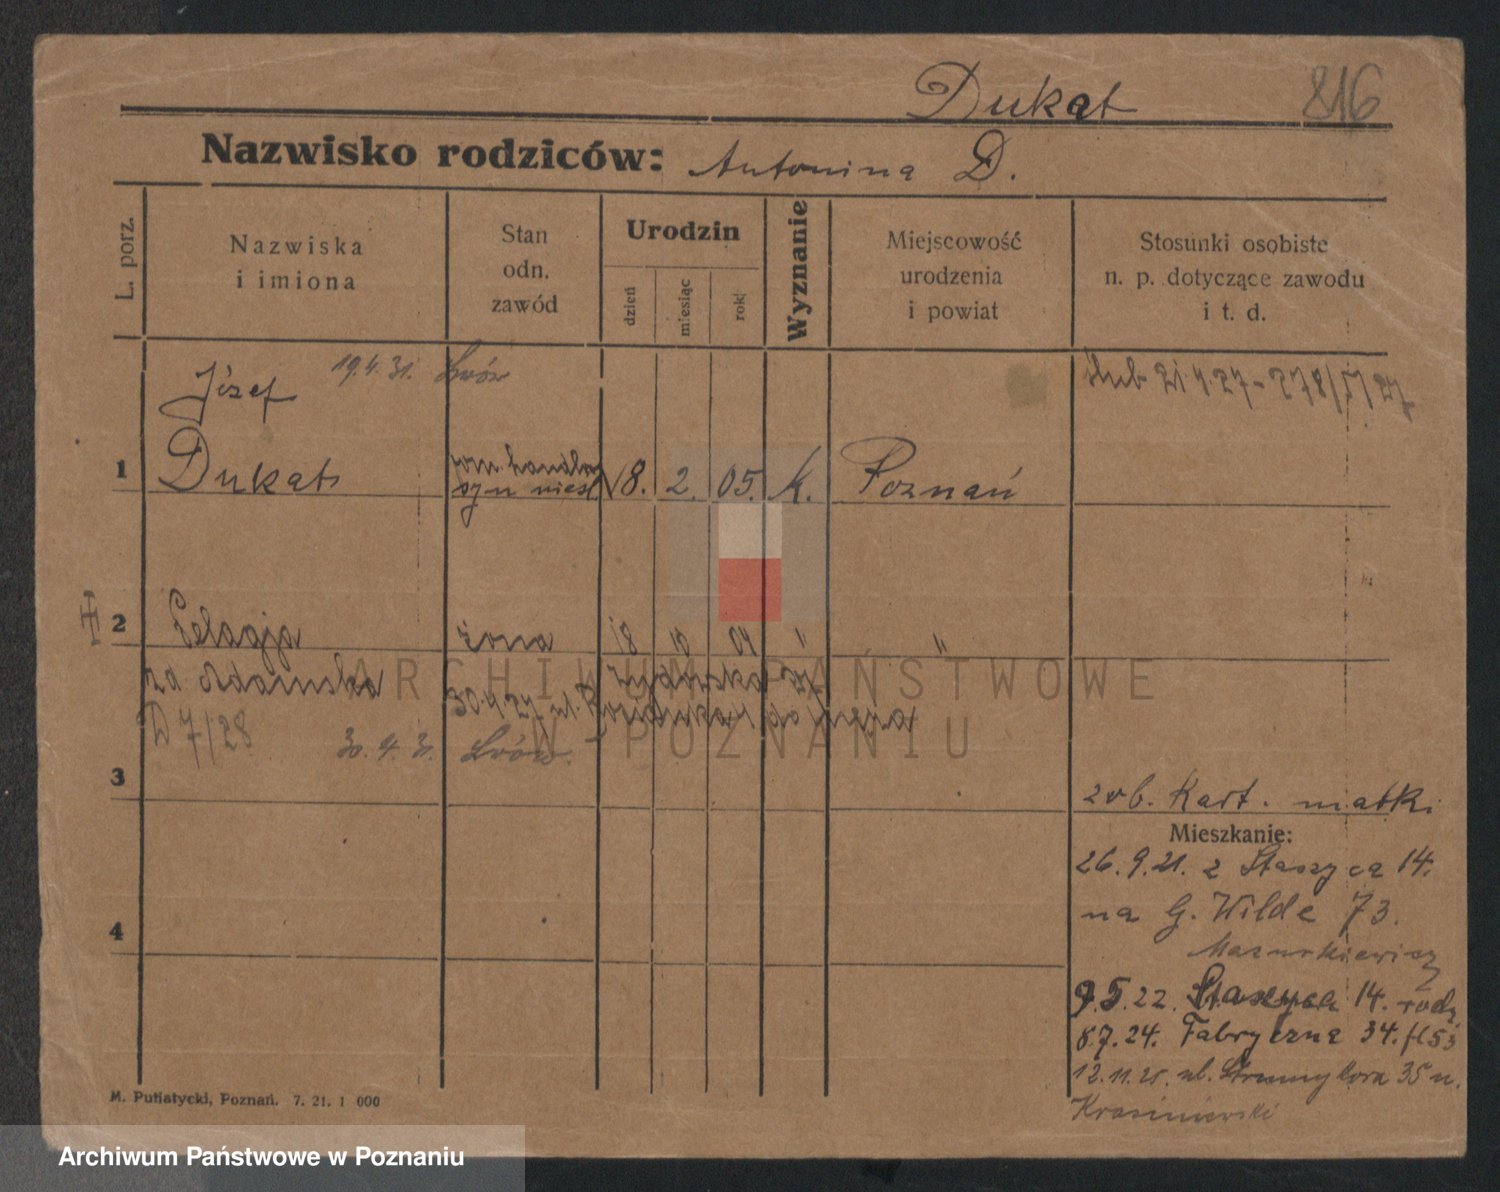 Dukat 816
Nazwisko rodziców: Antonina D.
L. porz.
Nazwiska
i imiona
Stan
odn.
zawód
Urodzin
dzień
miesiąc
rok
Wyznanie
Miejscowość
urodzenia
i powiat
Stosunki osobiste
n. p. dotyczące zawodu
i t. d.
Józef 19.4.31. Lwów
ślub 21.4.27 - 278/I/27
1 Dukat 18. 2. 05. k. Poznań
syn
2 Pelagja żona 18 10 04 " "
30.4.27 ul.
D 7/28 30.4.31. Lwów.
3
zob. Kart. matki
Mieszkanie:
26.9.21. z Staszyca 14.
4
na G. Wilde 73.
Mazurkiewicz
9.5.22. Staszyca 14. rodz.
8.7.24. Fabryczna 34.
12.11.25. ul. 35 u.
Krasiniewski
M. Putiatycki, Poznań. 7. 21. 1 000
ARCHIWUM PAŃSTWOWE
W POZNANIU
Archiwum Państwowe w Poznaniu